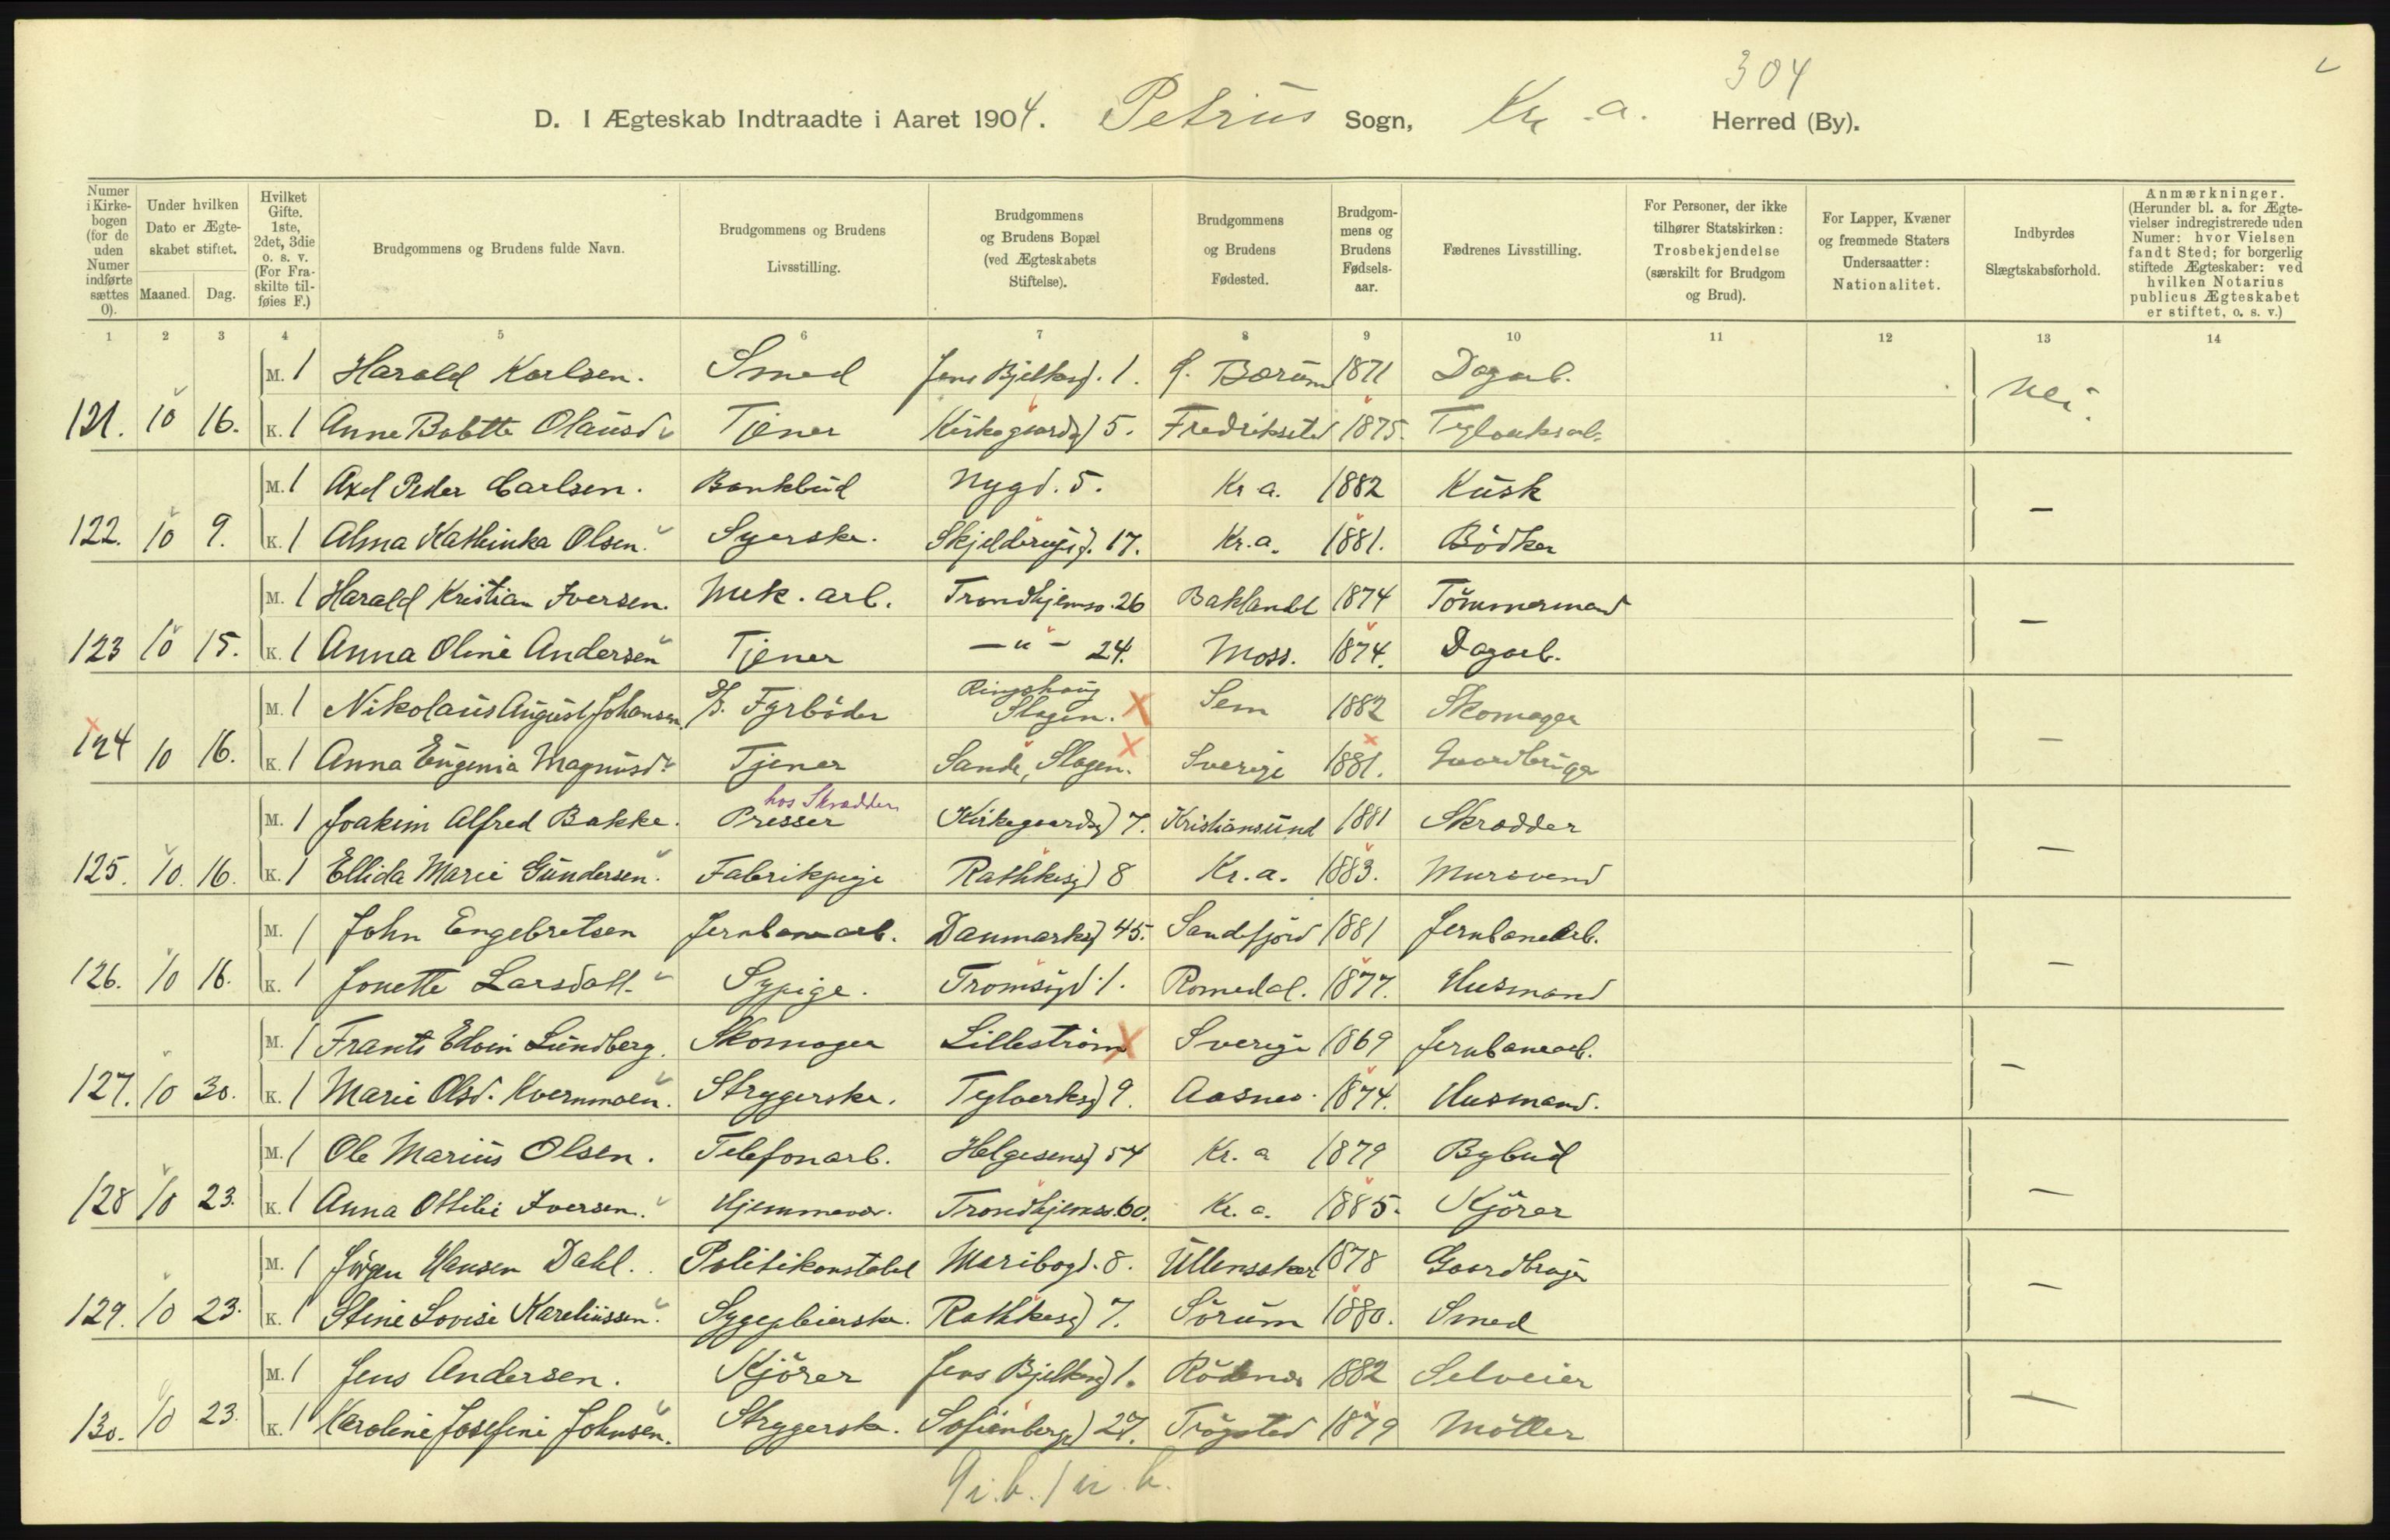 304
D. I Ægteskab Indtraadte i Aaret 1904. Petrus Sogn, Kr.a. Herred (By).
Numer i Kirkebogen (for de uden Numer indførte sættes 0).
Under hvilken Dato er Ægteskabet stiftet.
Maaned. Dag.
Hvilket Gifte. 1ste, 2det, 3die o. s. v. (For Fraskilte tilføies F.)
Brudgommens og Brudens fulde Navn.
Brudgommens og Brudens Livsstilling.
Brudgommens og Brudens Bopæl (ved Ægteskabets Stiftelse).
Brudgommens og Brudens Fødested.
Brudgommens og Brudens Fødselsaar.
Fædrenes Livsstilling.
For Personer, der ikke tilhører Statskirken: Trosbekjendelse (særskilt for Brudgom og Brud).
For Lapper, Kvæner og fremmede Staters Undersaatter: Nationalitet.
Indbyrdes Slægtskabsforhold.
Anmærkninger. (Herunder bl. a. for Ægtevielser indregistrerede uden Numer: hvor Vielsen fandt Sted; for borgerlig stiftede Ægteskaber: ved hvilken Notarius publicus Ægteskabet er stiftet, o. s. v.)
1 2 3 4 5 6 7 8 9 10 11 12 13 14
M. 1 Harald Karlsen. Smed Jens Bjelkesg. 1. Ø. Bærum 1871 Dagarb. Nei.
121. 10 16. K. 1 Anne Bolette Olausd. Tjener Kirkegaardsg 5. Fredriksstad 1875. Teglverksarb.
M. 1 Axel Peder Carlsen. Bankbud Nygd. 5. Kr a. 1882 Kusk —
122. 10 9. K. 1 Alma Kathinka Olsen. Syerske. Skjelderupsg. 17. Kr.a. 1881. Bödker
M. 1 Harald Kristian Iversen. Mek. arb. Trondhjemsv. 26 Baklandet 1874 Tömmermand —
123 10 15. K. 1 Anna Oline Andersen Tjener — " — 24. Moss. 1874. Dagarb.
M. 1 Nikolaus August Johansen S/S. Fyrböder Ringshaug Slagen. Sem 1882 Skomager —
124 10 16. K. 1 Anna Eugenia Magnusd. Tjener Sande, Slagen. Sverige 1881. Gaardbruger
M. 1 Joakim Alfred Bakke. Presser hos Skrædder Kirkegaardsg 7. Kristiansund 1881 Skrædder —
125. 10. 16. K. 1 Ellida Marie Gundersen. Fabrikpige Rathkesg 8 Kr. a. 1883. Mursvend
M. 1 John Engebretsen Jernbanearb. Danmarksg 45. Sandefjord 1881 Jernbanearb. —
126. 10 16. K. 1 Jonette Larsdatt. Sypige. Tromsögd 1. Romedal. 1877. Husmand
M. 1 Frants Edvin Lundberg. Skomager Lilleström Sverige 1869 Jernbanearb. —
127. 10 30. K. 1 Marie Olsd. Kvernmoen. Strygerske. Teglverksg 9. Aasnes. 1874. Husmand.
M. 1 Ole Marius Olsen. Telefonarb. Helgesensg 54 Kr. a 1879 Bybud —
128 10 23. K. 1 Anna Ottilie Iversen. Hjemmevær. Trondhjemsv. 60. Kr. a. 1885. Kjörer
M. 1 Jörgen Hansen Dahl. Politikonstabel Maribogd. 8. Ullensaker 1878 Gaardbruger —
129. 10 23. K. 1 Stine Lovise Kareliussen. Sygepleierske. Rathkesg 7. Sörum 1880. Smed
M. 1 Jens Andersen. Kjörer Jens Bjelkesg 1. Rödenes 1882 Selveier —
130. 10 23. K. 1 Karoline Josefine Johnsen. Strygersk. Sofienbergg 27. Trögstad 1879 Möller
9 i.b. 1 u.b.